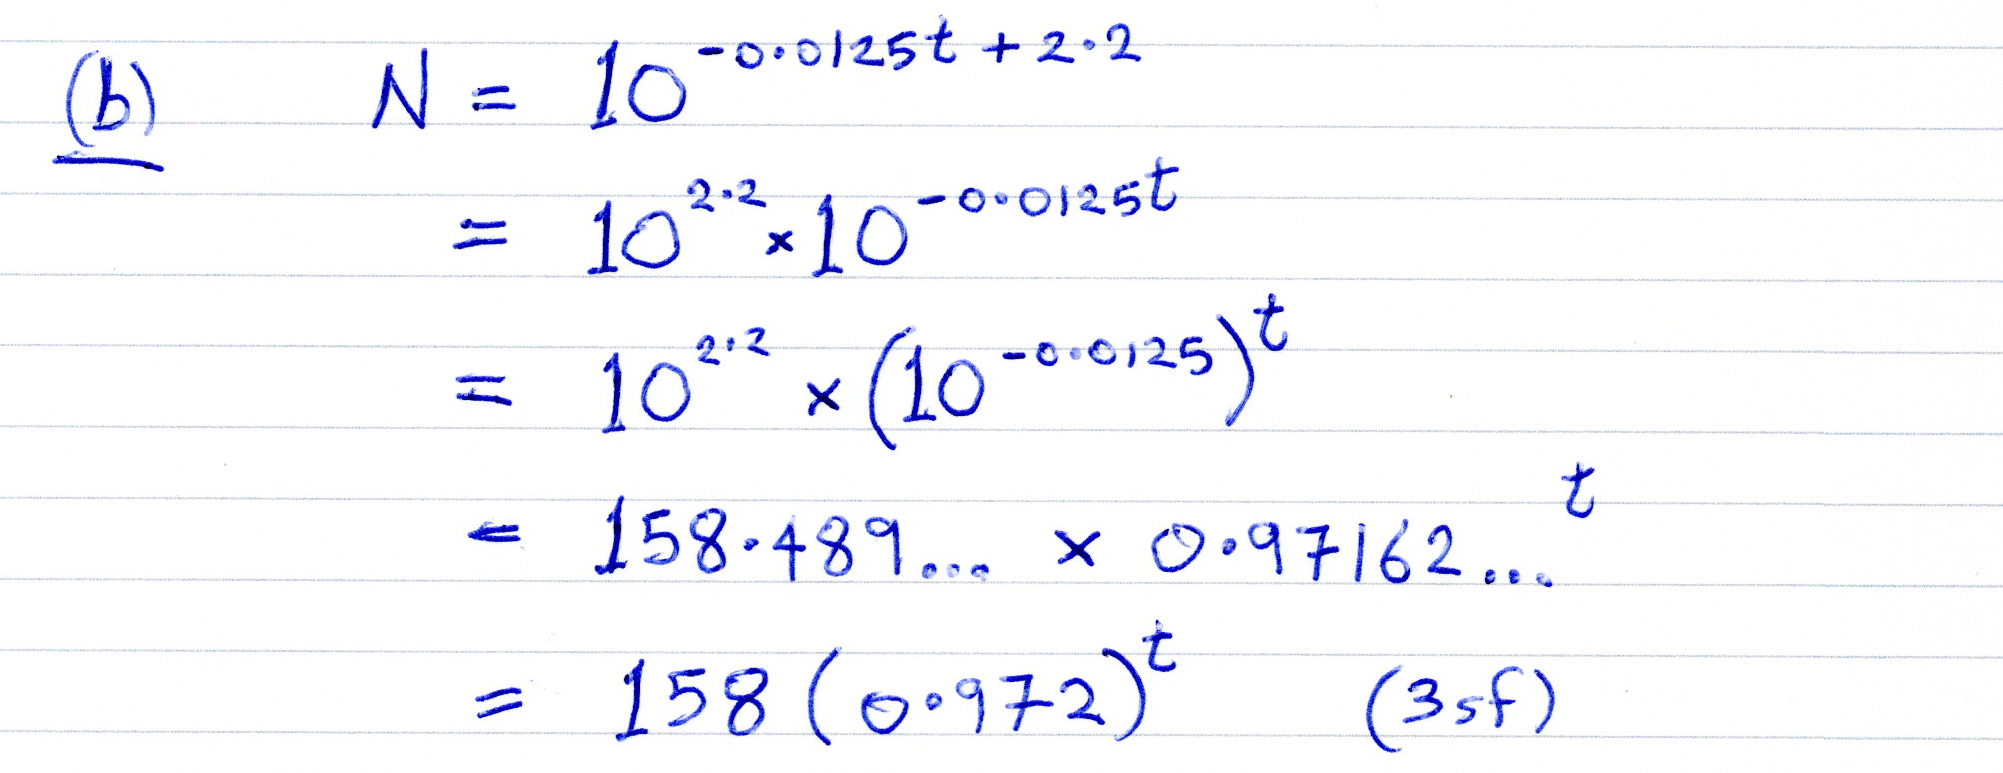 (b) N = 10^{-0.0125t + 2.2}
= 10^{2.2} × 10^{-0.0125t}
= 10^{2.2} × (10^{-0.0125})^t
= 158.489... × 0.97162...^t
= 158(0.972)^t (3sf)